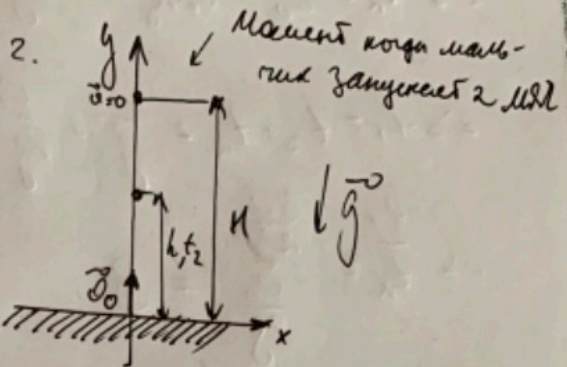 2.
y
Момент когда маль-
чик запускает 2 мяч
v⃗=0
H
h, t₂
g⃗
v⃗₀
x